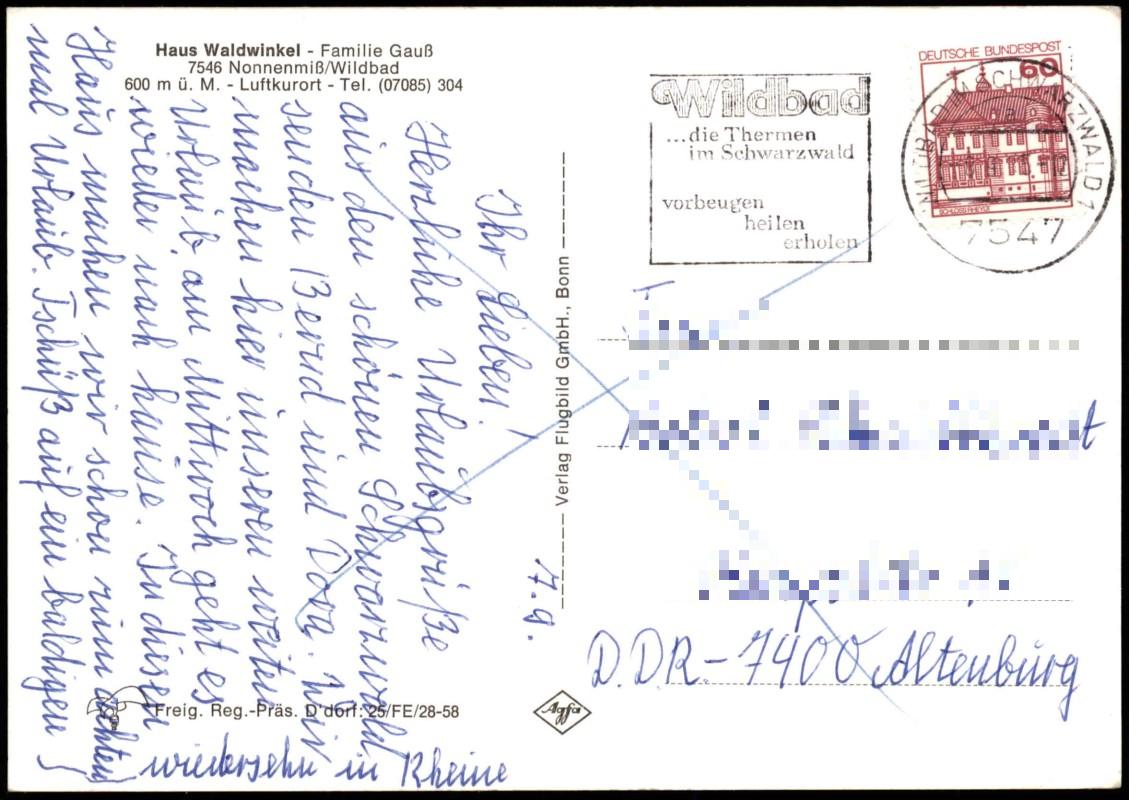 Haus Waldwinkel - Familie Gauß
7546 Nonnenmiß/Wildbad
600 m ü. M. - Luftkurort - Tel. (07085) 304
7.9.
Ihr Lieben!
Herzliche Urlaubsgrüße
aus den schönen Schwarzwald
senden Bernd und Dora. Wir
machen hier unseren weiten
Urlaub, am Mittwoch geht es
wieder nach hause. In diesen
Haus machen wir schon zum achten
mal Urlaub. Tschüß auf ein baldigen
wiedersehn in Rheine
Freig. Reg.-Präs. D'dorf: 25/FE/28-58
Verlag Flugbild GmbH., Bonn
Agfa
Wildbad
...die Thermen
im Schwarzwald
vorbeugen
heilen
erholen
DEUTSCHE BUNDESPOST
60
SCHLOSS RHEYDT
WILDBAD IM SCHWARZWALD 1
7547
D.D.R. - 7400 Altenburg